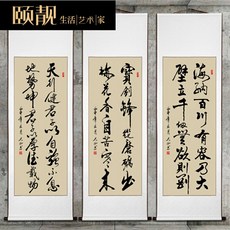 颐靓 生活艺术家
海纳百川有容乃大
壁立千仞无欲则刚
宝剑锋从磨砺出
梅花香自苦寒来
天行健君子以自强不息
地势坤君子以厚德载物